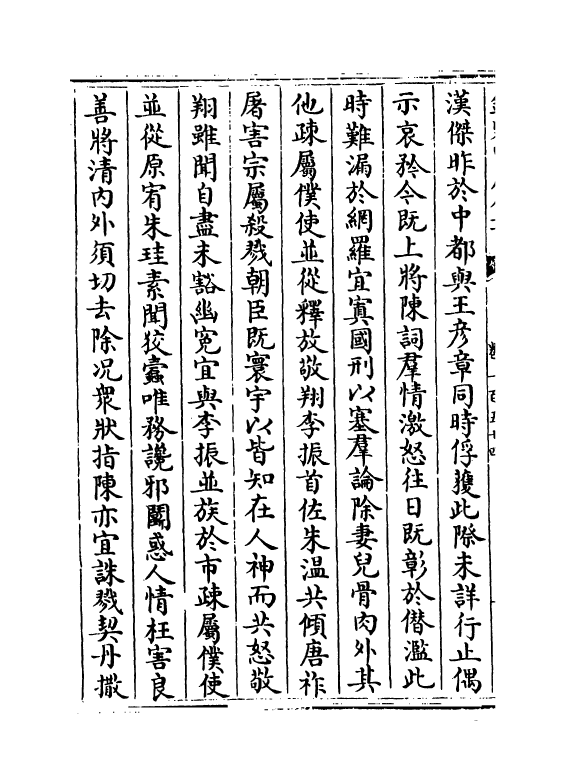 漢傑昨於中都與王彥章同時俘獲此際未詳行止偶
示哀矜今既上將陳詞羣情激怒往日既彰於僭濫此
時難漏於網羅宜寘國刑以塞羣論除妻兒骨肉外其
他疎屬僕使並從釋放敬翔李振首佐朱温共傾唐祚
屠害宗屬殺戮朝臣既寰宇以皆知在人神而共怒敬
翔雖聞自盡未豁幽寃宜與李振並族於市疎屬僕使
並從原宥朱珪素聞狡蠧唯務讒邪鬭惑人情枉害良
善將清内外須切去除况衆狀指陳亦宜誅戮契丹撒